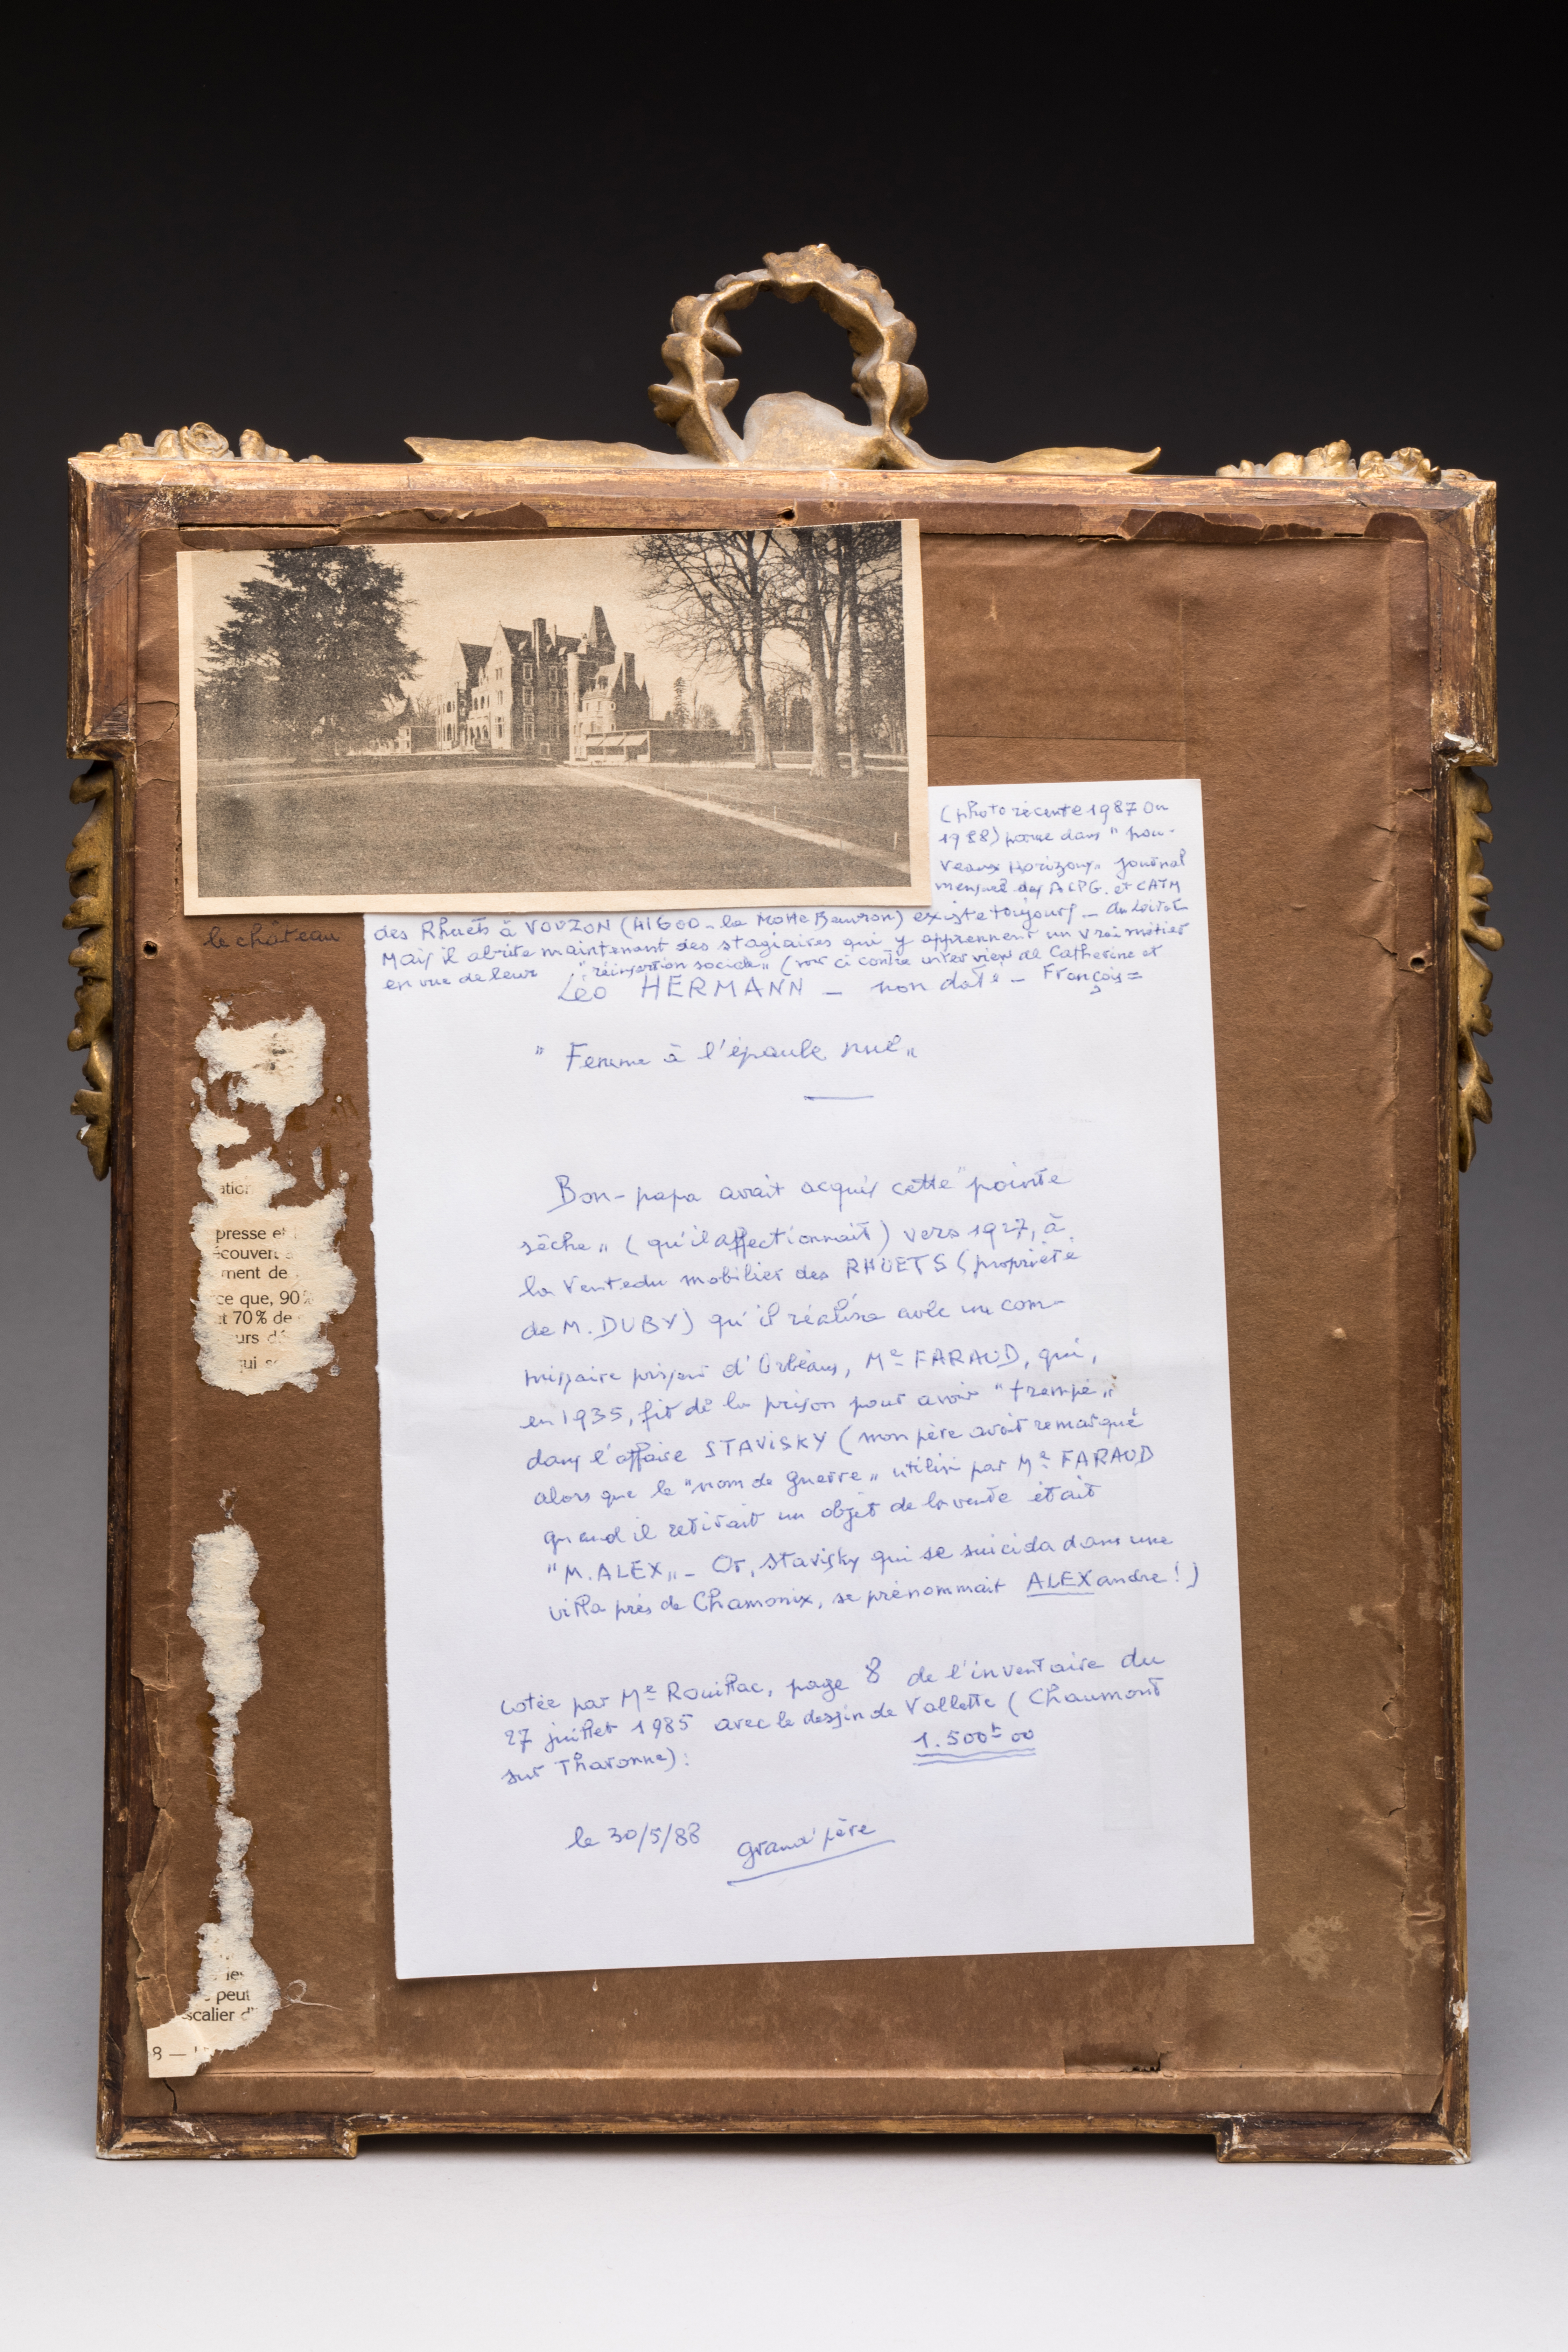 (photo récente 1987 ou
1988) parue dans "nou-
veaux Horizons" journal
mensuel des ACPG. et CATM
du Loiret
le château
des Rhuets à VOUZON (41600 - la Motte Beuvron) existe toujours -
Mais il abrite maintenant des stagiaires qui y apprennent un vrai métier
en vue de leur "réinsertion sociale" (voir ci contre interview de Catherine et
François =
Léo HERMANN - non daté -
"Femme à l'épaule nue"
Bon-papa avait acquis cette "pointe
sèche" (qu'il affectionnait) vers 1927, à
la vente du mobilier des RHUETS (propriété
de M. DUBY) qu'il réalisa avec un com-
missaire priseur d'Orléans, Me FARAUD, qui,
en 1935, fit de la prison pour avoir "trempé"
dans l'affaire STAVISKY (mon père avait remarqué
alors que le "nom de guerre" utilisé par Me FARAUD
quand il retirait un objet de la vente était
"M. ALEX" - Or, Stavisky qui se suicida dans une
villa près de Chamonix, se prénommait ALEXandre !)
cotée par Me Rouillac, page 8 de l'inventaire du
27 juillet 1985 avec le dessin de Vallette (Chaumont
sur Tharonne) : 1.500F 00
le 30/5/88 grand'père
ation
presse et
écouvert
ment de
ce que, 90%
t 70% de
urs dé
ui se
les
peut
scalier d'
8 —